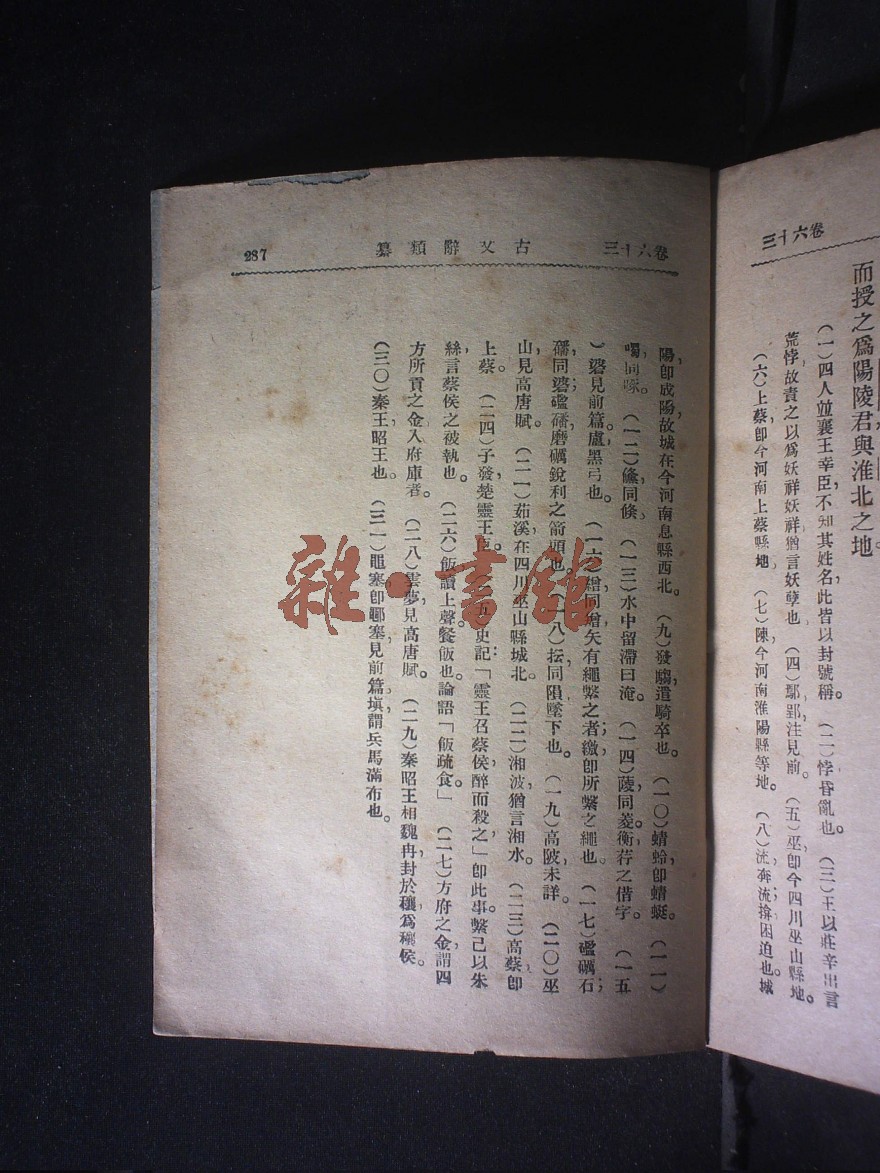 卷六十三
而授之爲陽陵君與淮北之地。
(一)四人並襄王幸臣,不知其姓名,此皆以封號稱。(二)悖昏亂也。(三)王以莊辛出言
荒悖,故責之以爲妖祥,妖祥猶言妖孽也。(四)鄢郢,注見前。(五)巫即今四川巫山縣地。
(六)上蔡即今河南上蔡縣地。(七)陳今河南淮陽縣等地。(八)流奔流;揜困迫也;城
卷六十三
古文辭類纂
287
陽,即成陽,故城在今河南息縣西北。(九)發騶,遣騎卒也。(一〇)蜻蛉,即蜻蜓。(一一)
噣,同啄。(一二)鯈同倏。(一三)水中留滯曰淹。(一四)蔆同菱,衡荇之借字。(一五
)碆見前篇。盧,黑弓也。(一六)矰同增,矢有繩繫之者;繳即所繫之繩也。(一七)礛礪石;
磻同碆,礛磻,磨礪銳利之箭頭也。(一八)抎同隕,墜下也。(一九)高陂未詳。(二〇)巫
山,見高唐賦。(二一)茹溪,在四川巫山縣城北。(二二)湘波猶言湘水。(二三)高蔡即
上蔡。(二四)子發,楚靈王臣。(二五)史記:「靈王召蔡侯,醉而殺之,」即此事。繫己以朱
絲,言蔡侯之被執也。(二六)飯讀上聲,餐飯也。論語「飯疏食。」(二七)方府之金,謂四
方所貢之金,入府庫者。(二八)雲夢見高唐賦。(二九)秦昭王相魏冉,封於穰,爲穰侯。
(三〇)秦王,昭王也。(三一)黽塞即鄳塞,見前篇,塡謂兵馬滿布也。
雜·書館